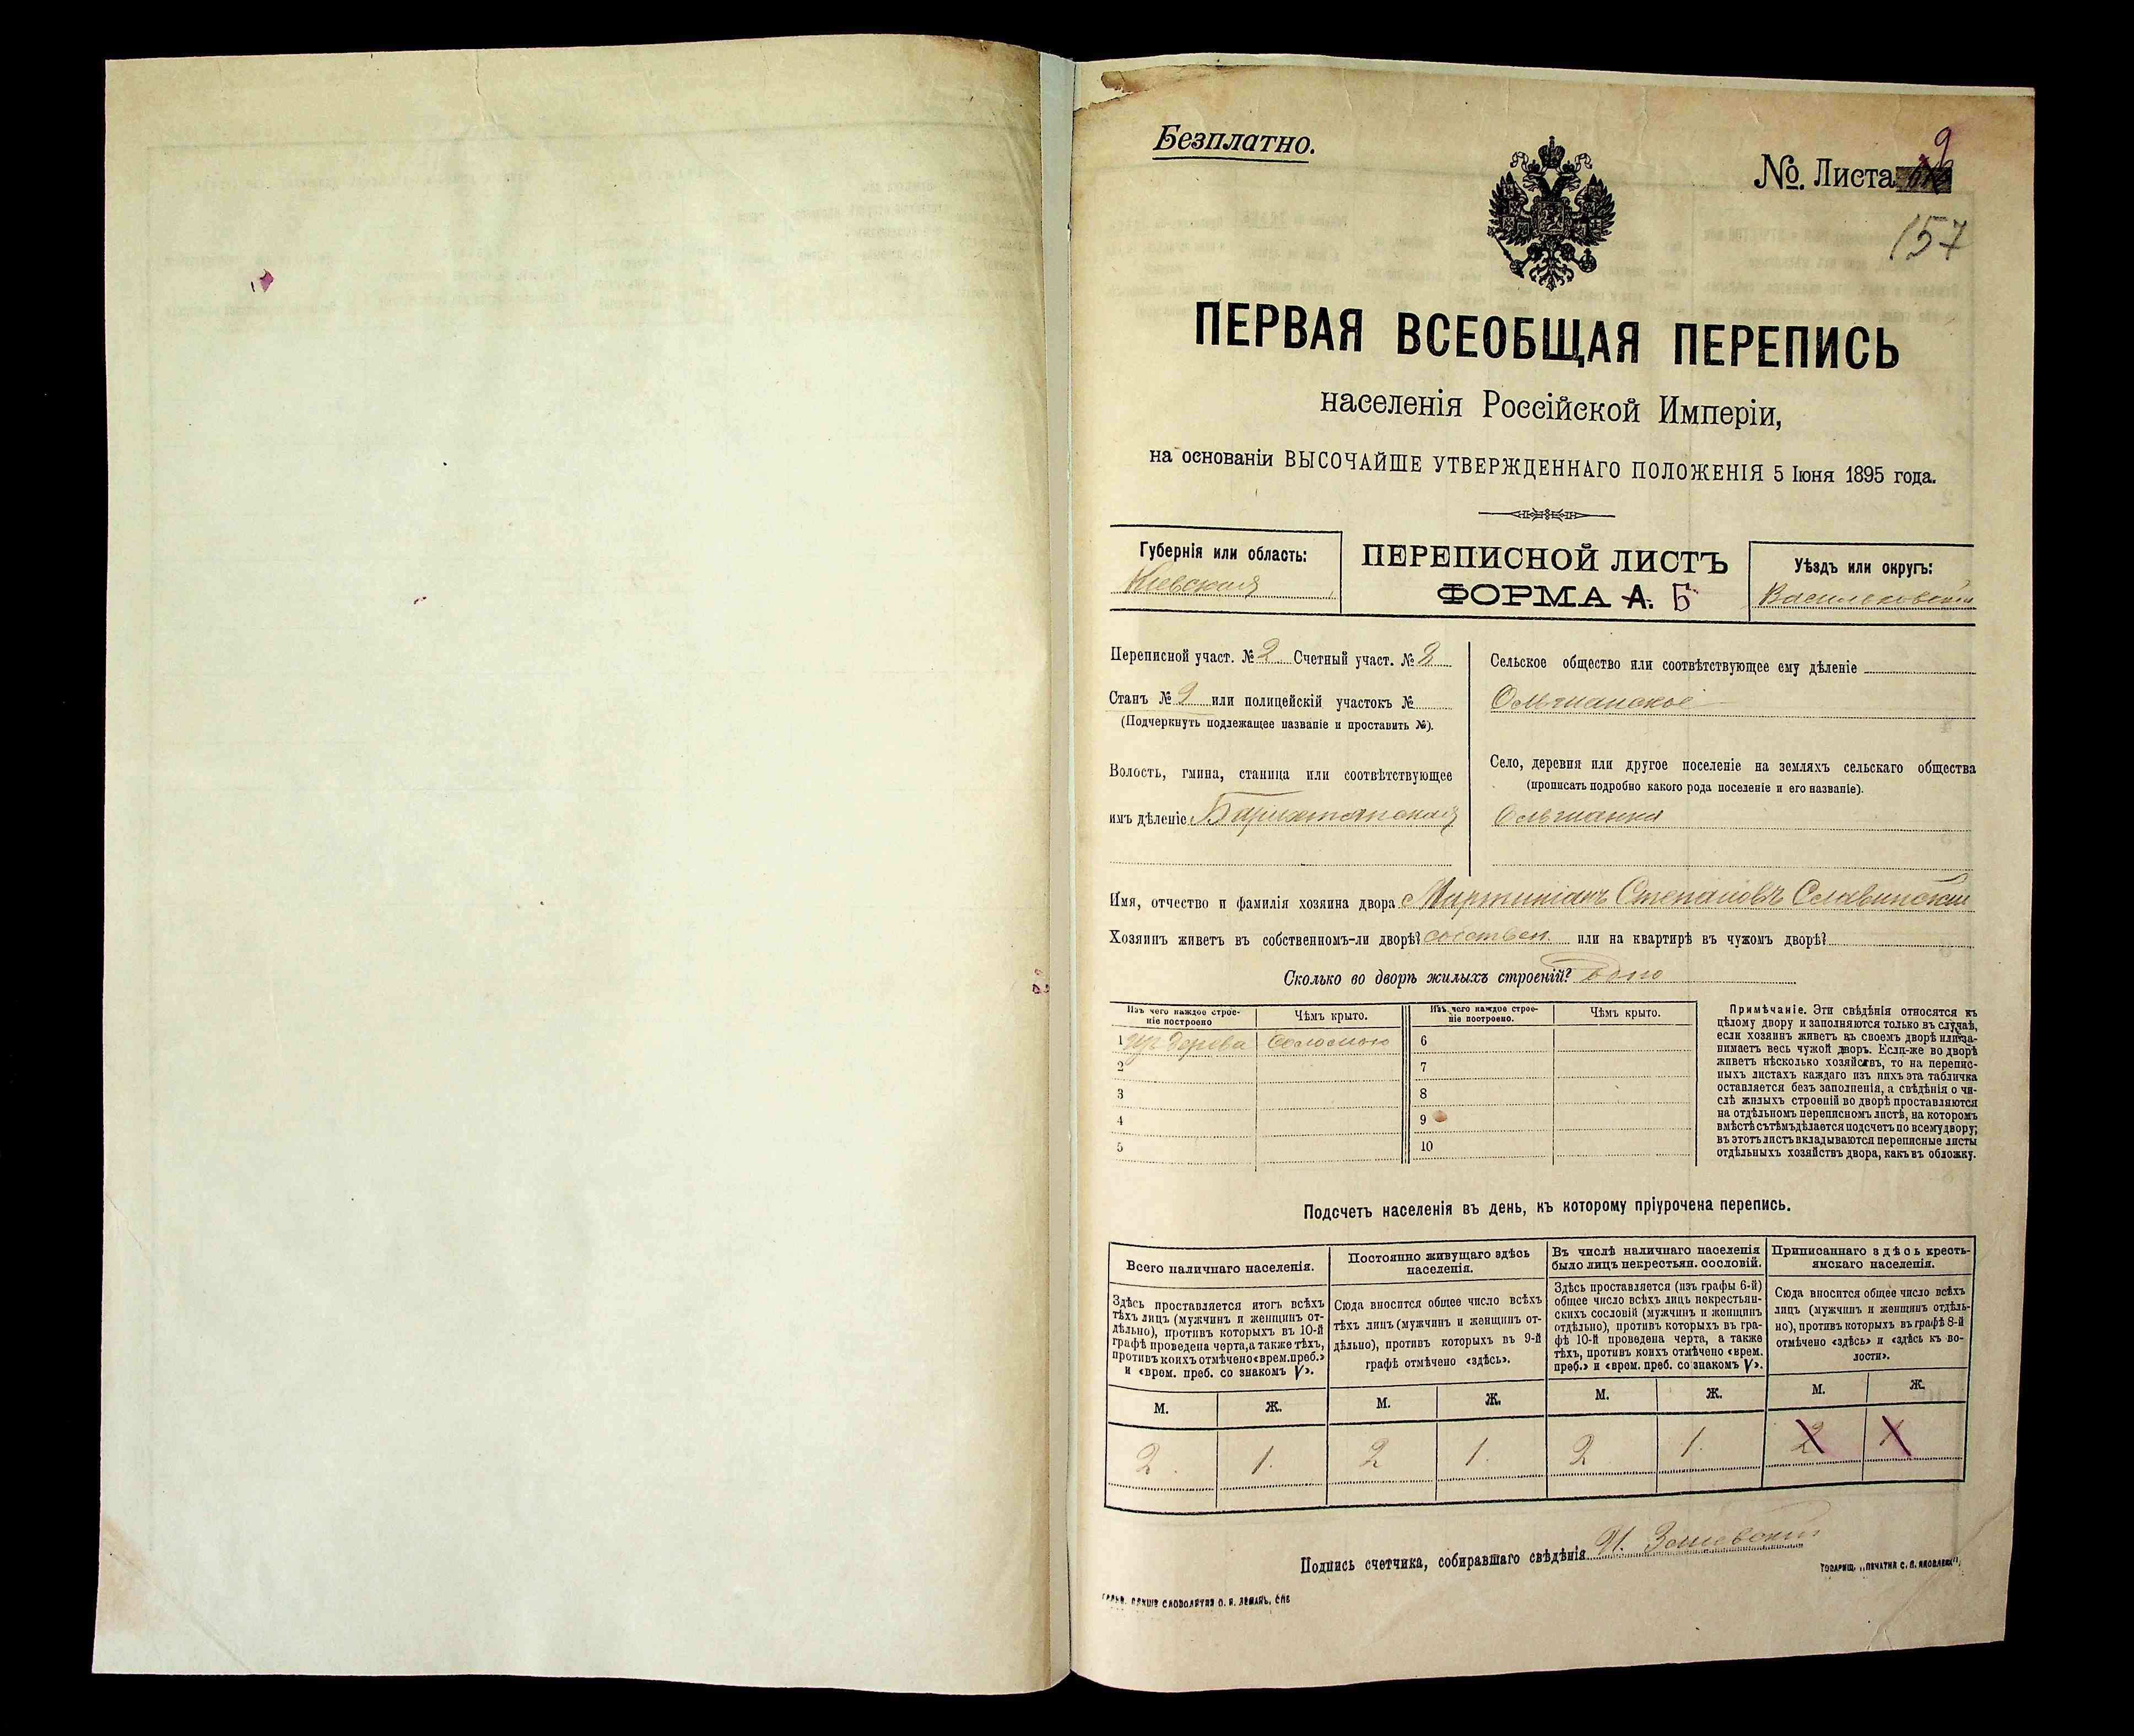 Безплатно.
№ Листа 9
157
ПЕРВАЯ ВСЕОБЩАЯ ПЕРЕПИСЬ
населенія Россійской Имперіи,
на основаніи ВЫСОЧАЙШЕ УТВЕРЖДЕННАГО ПОЛОЖЕНІЯ 5 Іюня 1895 года.
Губернія или область:
Кіевская
ПЕРЕПИСНОЙ ЛИСТЪ
ФОРМА А. Б
Уѣздъ или округъ:
Васильковскій
Переписной участ. № 2 Счетный участ. № 2
Станъ № 2 или полицейскій участокъ №
(Подчеркнуть подлежащее названіе и проставить №).
Волость, гмина, станица или соотвѣтствующее
имъ дѣленіе
Сельское общество или соотвѣтствующее ему дѣленіе
Ольшанское
Село, деревня или другое поселеніе на земляхъ сельскаго общества
(прописать подробно какого рода поселеніе и его названіе).
Ольшанка
Имя, отчество и фамилія хозяина двора Мартиніанъ Степановъ Славинскій
Хозяинъ живетъ въ собственномъ-ли дворѣ? собствен. или на квартирѣ въ чужомъ дворѣ?
Сколько во дворѣ жилыхъ строеній? Одно
Изъ чего каждое строе-
ніе построено
Чѣмъ крыто.
Изъ чего каждое строе-
ніе построено.
Чѣмъ крыто.
1 изъ дерева Соломою 6
2 7
3 8
4 9
5 10
Примѣчаніе. Эти свѣдѣнія относятся къ
цѣлому двору и заполняются только въ случаѣ,
если хозяинъ живетъ въ своемъ дворѣ или за-
нимаетъ весь чужой дворъ. Если-же во дворѣ
живетъ нѣсколько хозяйствъ, то на перепис-
ныхъ листахъ каждаго изъ нихъ эта табличка
оставляется безъ заполненія, а свѣдѣнія о чи-
слѣ жилыхъ строеній во дворѣ проставляются
на отдѣльномъ переписномъ листѣ, на которомъ
вмѣстѣ сътѣмъ дѣлается подсчетъ по всему двору;
въ этотъ листъ вкладываются переписные листы
отдѣльныхъ хозяйствъ двора, какъ въ обложку.
Подсчетъ населенія въ день, къ которому пріурочена перепись.
Всего наличнаго населенія.
Здѣсь проставляется итогъ всѣхъ
тѣхъ лицъ (мужчинъ и женщинъ от-
дѣльно), противъ которыхъ въ 10-й
графѣ проведена черта, а также тѣхъ,
противъ коихъ отмѣчено «врем. преб.»
и «врем. преб. со знакомъ V».
Постоянно живущаго здѣсь
населенія.
Сюда вносится общее число всѣхъ
тѣхъ лицъ (мужчинъ и женщинъ от-
дѣльно), противъ которыхъ въ 9-й
графѣ отмѣчено «здѣсь».
Въ числѣ наличнаго населенія
было лицъ некрестьян. сословій.
Здѣсь проставляется (изъ графы 6-й)
общее число всѣхъ лицъ некрестьян-
скихъ сословій (мужчинъ и женщинъ
отдѣльно), противъ которыхъ въ гра-
фѣ 10-й проведена черта, а также
тѣхъ, противъ коихъ отмѣчено «врем.
преб.» и «врем. преб. со знакомъ V».
Приписаннаго здѣсь кресть-
янскаго населенія.
Сюда вносится общее число всѣхъ
лицъ (мужчинъ и женщинъ отдѣль-
но), противъ которыхъ въ графѣ 8-й
отмѣчено «здѣсь» и «здѣсь къ во-
лости».
М. Ж. М. Ж. М. Ж. М. Ж.
2. 1. 2 1. 2 1. 2 1
Подпись счетчика, собиравшаго свѣдѣнія
ТОВАРИЩ. „ПЕЧАТНЯ С. П. ЯКОВЛЕВА".
СЛОВОЛИТНЯ О. И. ЛЕМАНЪ, СПБ